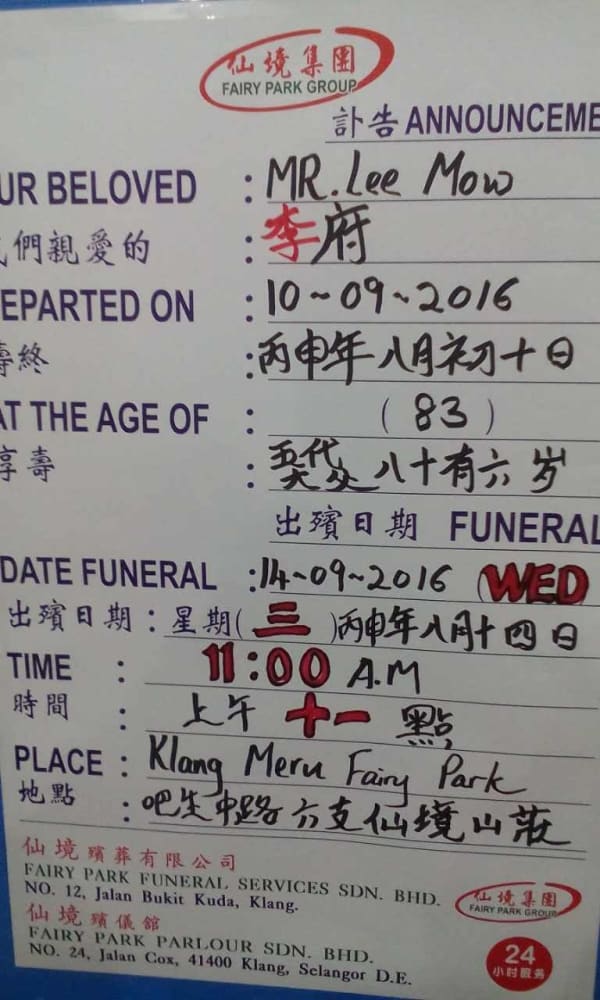 仙境集團
FAIRY PARK GROUP
訃告 ANNOUNCEME
UR BELOVED : MR. Lee Mow
們親愛的 : 李府
EPARTED ON : 10~09~2016
壽終 : 丙申年八月初十日
AT THE AGE OF : (83)
享壽 : 五代 八十有六岁
出殯日期 FUNERAL
DATE FUNERAL : 14~09~2016 (WED
出殯日期 : 星期(三)丙申年八月十四日
TIME : 11:00 A.M
時間 : 上午 十一 點
PLACE : Klang Meru Fairy Park
地點 : 吧生中路六支仙境山莊
仙境殯葬有限公司
FAIRY PARK FUNERAL SERVICES SDN. BHD.
NO. 12, Jalan Bukit Kuda, Klang.
仙境殯儀館
FAIRY PARK PARLOUR SDN. BHD.
NO. 24, Jalan Cox, 41400 Klang, Selangor D.E.
仙境集團
FAIRY PARK GROUP
24
小时服务